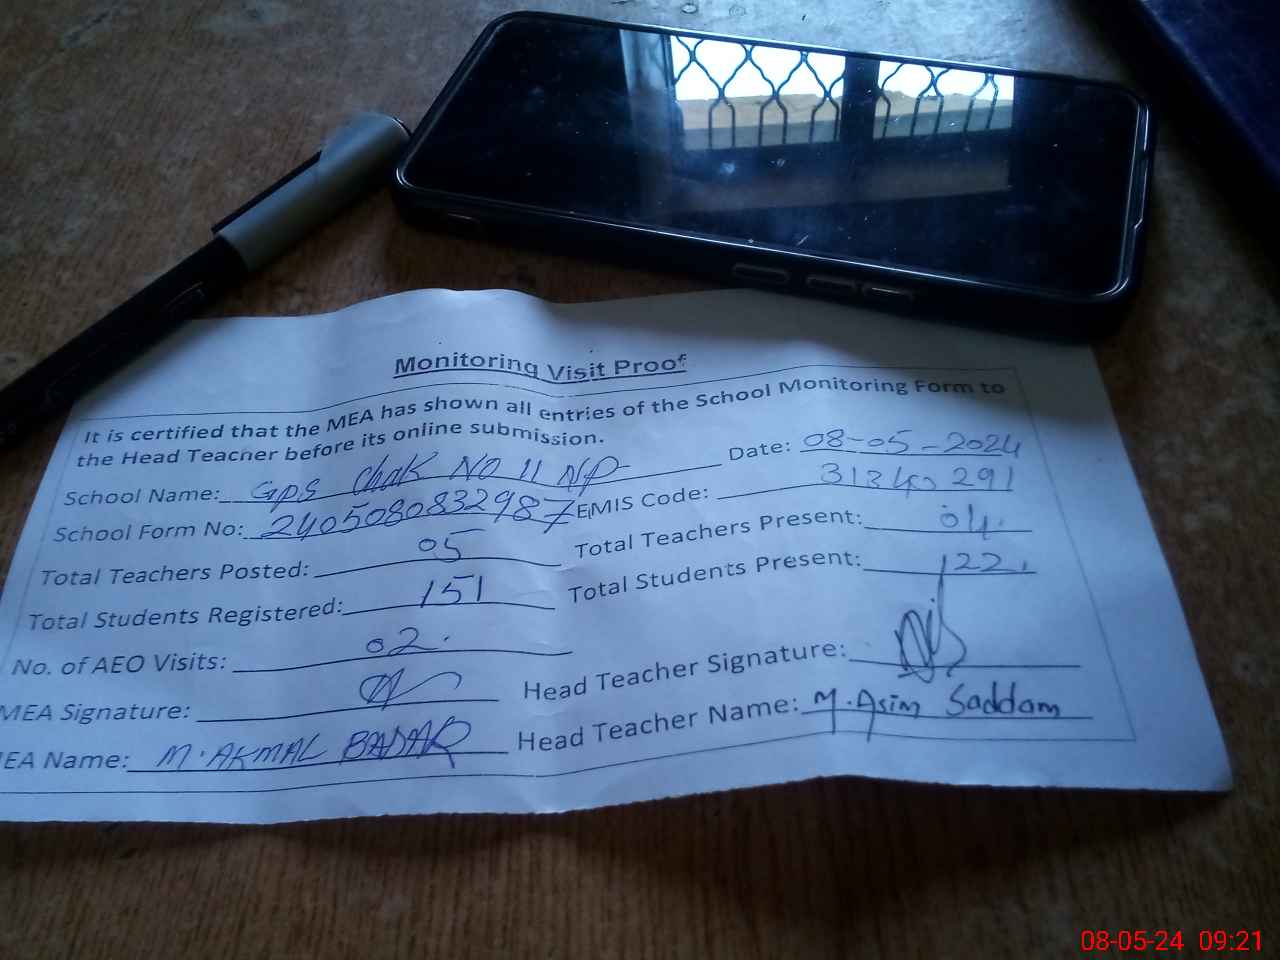 Monitoring Visit Proof
It is certified that the MEA has shown all entries of the School Monitoring Form to
the Head Teacher before its online submission.
Date: 08-05-2024
School Name: GPS Chak NO 11 NP
School Form No: 2405080832987 EMIS Code: 31340291
Total Teachers Posted: 05 Total Teachers Present: 04.
Total Students Registered: 151 Total Students Present: 122.
No. of AEO Visits: 02.
MEA Signature: Head Teacher Signature:
MEA Name: M. AKMAL BADAR Head Teacher Name: M. Asim Saddam
08-05-24 09:21